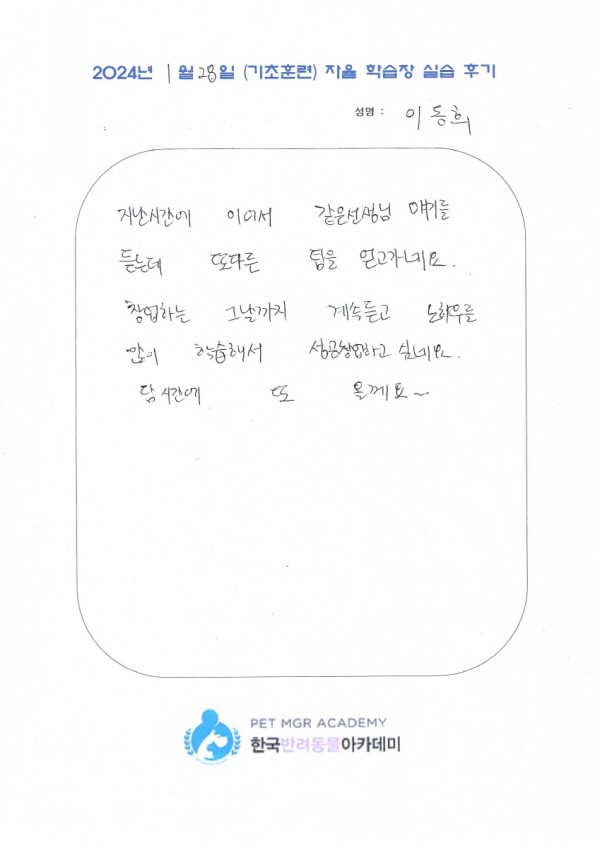 2024년 1월 28일 (기초훈련) 자율 학습장 실습 후기
성명 : 이동희
지난시간에 이어서 같은선생님 얘기를
듣는데 또다른 팁을 얻고가네요.
창업하는 그날까지 계속듣고 노하우를
많이 학습해서 성공창업하고 싶네요.
담시간에 또 올께요~
PET MGR ACADEMY
한국반려동물아카데미